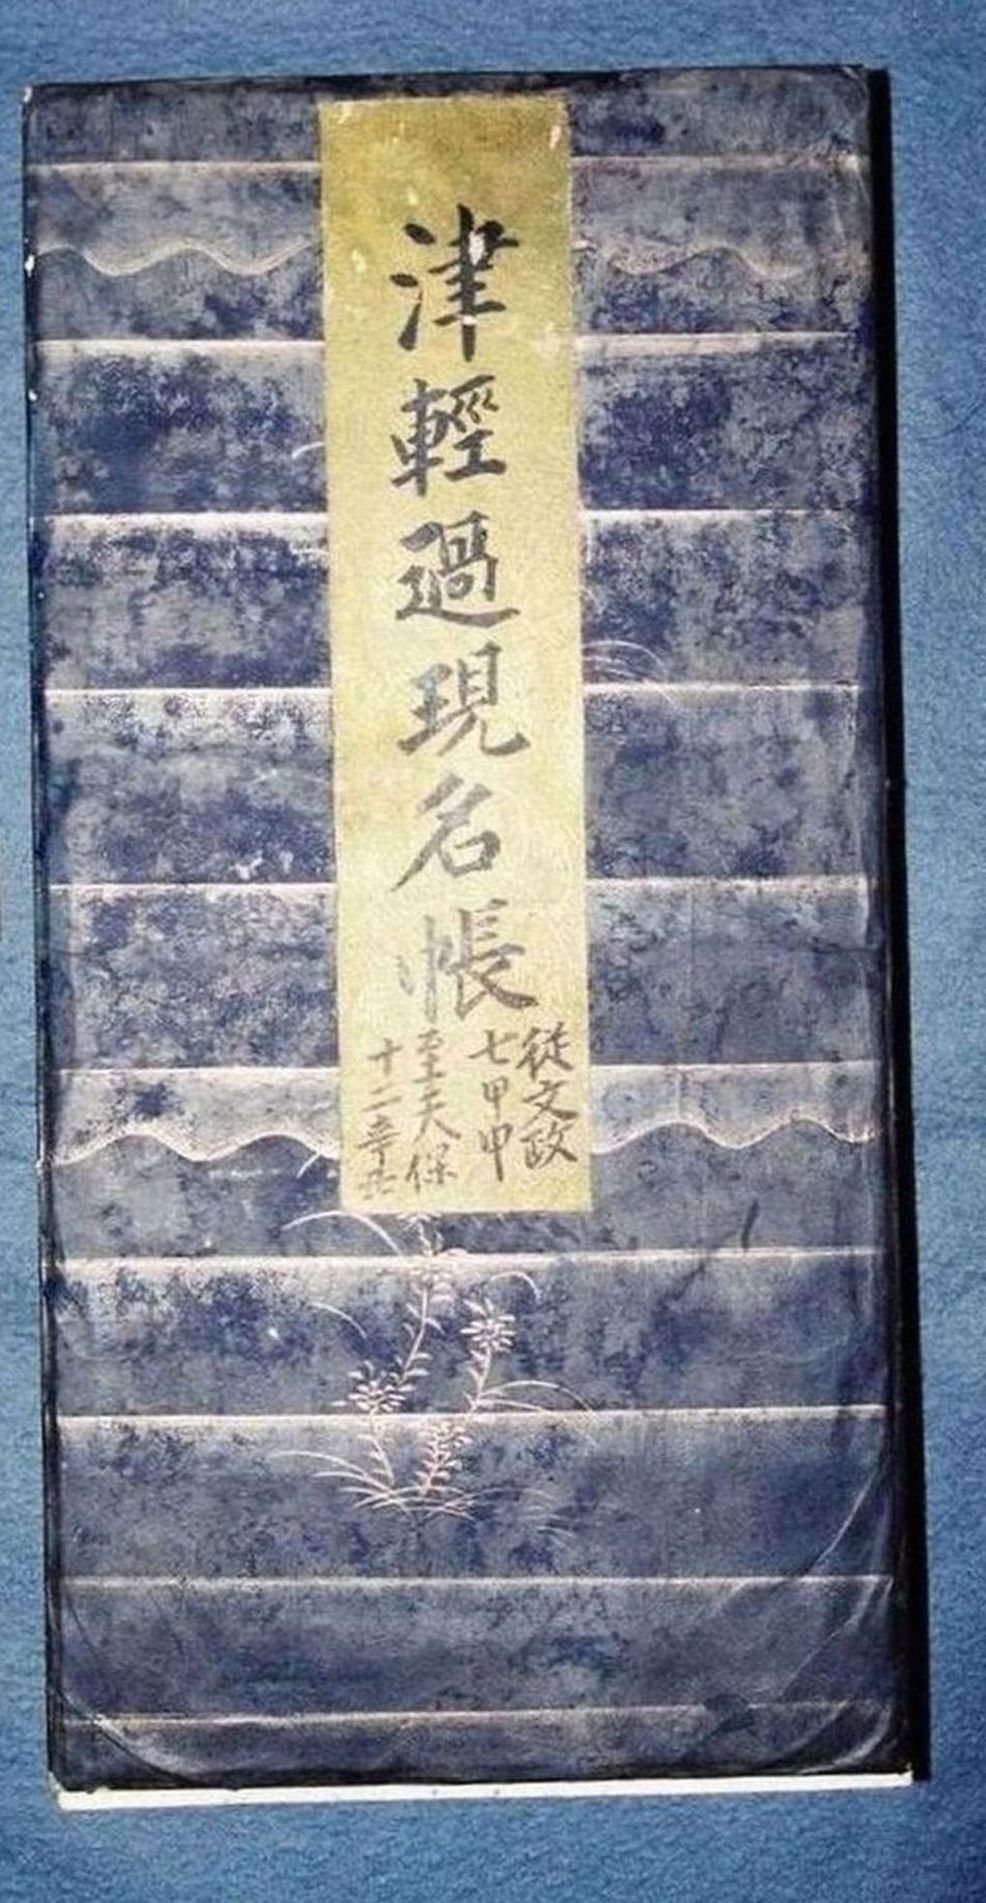 津輕過現名帳
從文政
七甲申
至天保
十二辛丑